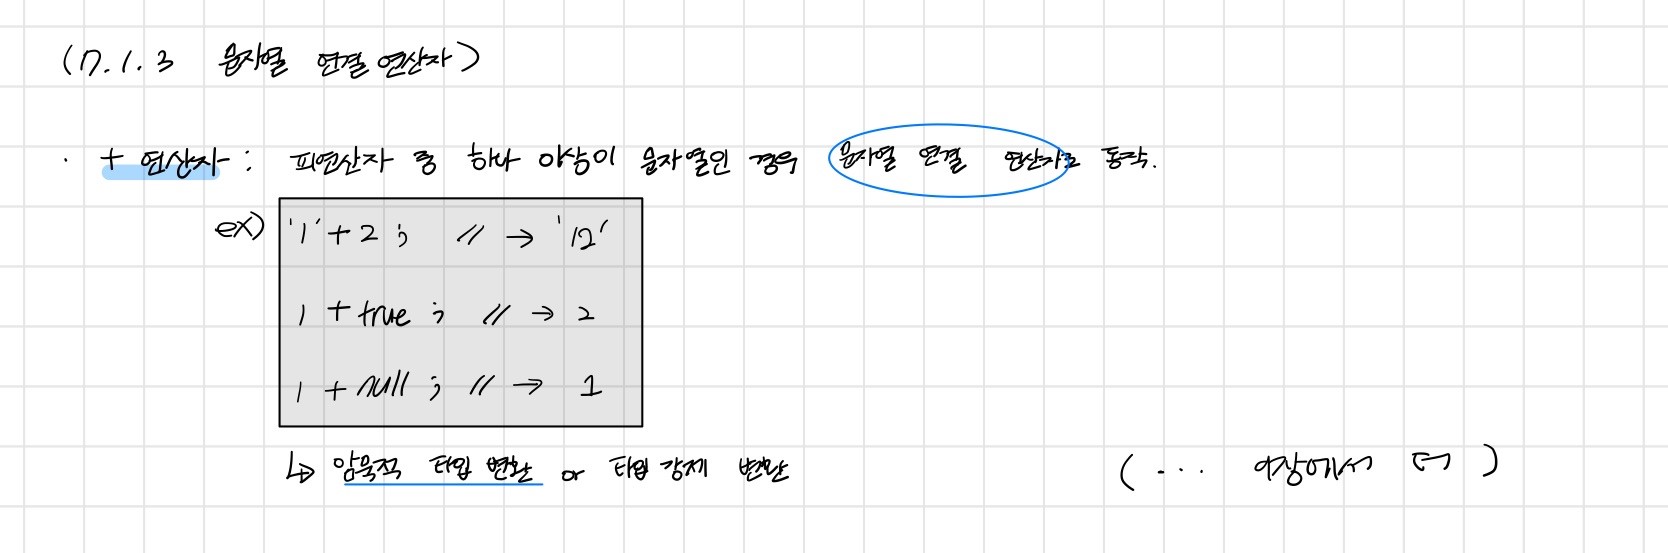 (7.1.3 문자열 연결 연산자)
· + 연산자 : 피연산자 중 하나 이상이 문자열인 경우 문자열 연결 연산자로 동작.
ex) '1' + 2 ; // → '12'
1 + true ; // → 2
1 + null ; // → 1
↳ 암묵적 타입 변환 or 타입 강제 변환
( ... 9장에서 더 )